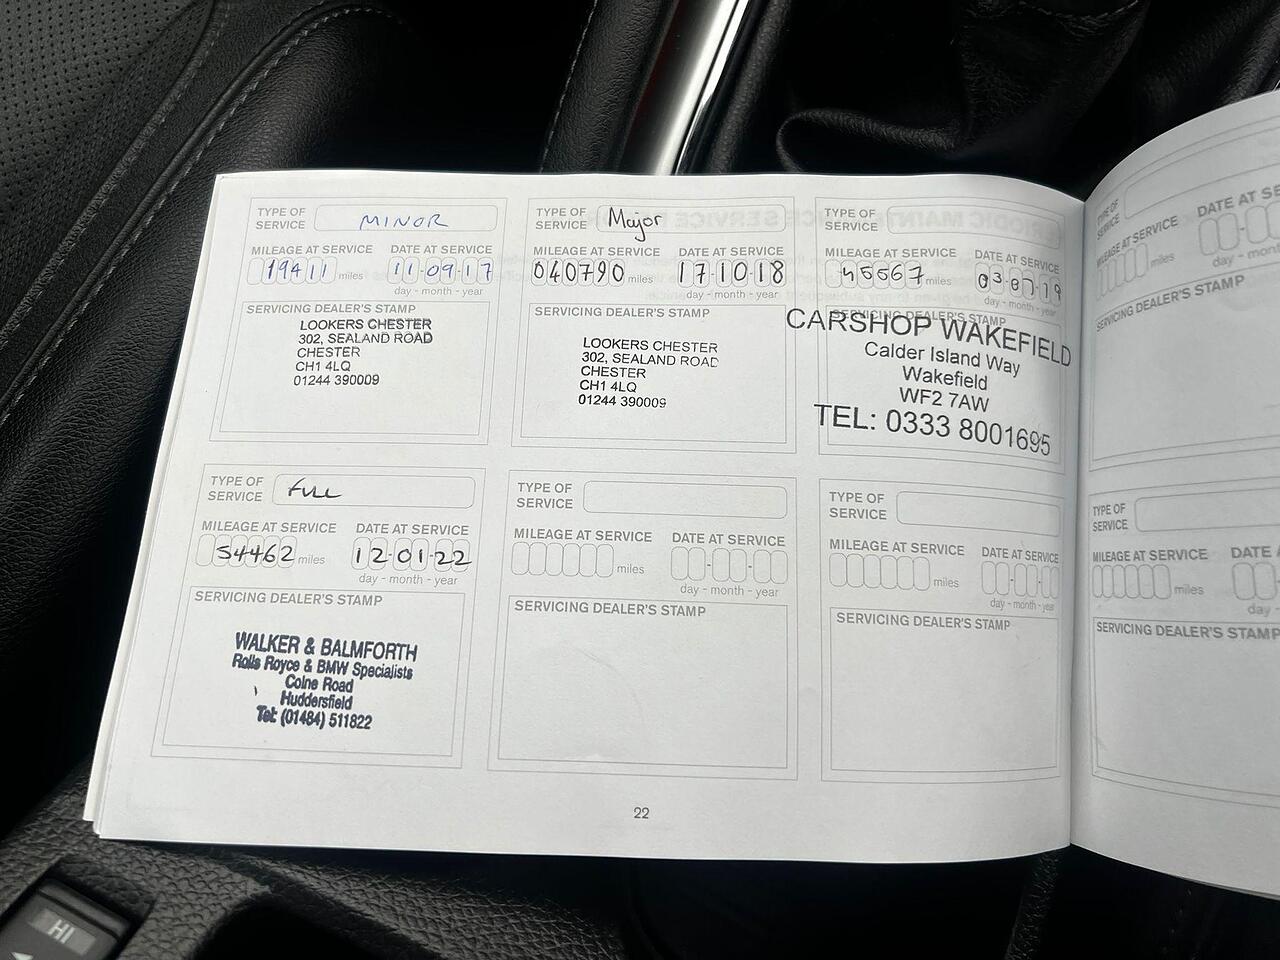 TYPE OF SERVICE MINOR
MILEAGE AT SERVICE DATE AT SERVICE
19411 miles 11-09-17
day - month - year
SERVICING DEALER'S STAMP
LOOKERS CHESTER
302, SEALAND ROAD
CHESTER
CH1 4LQ
01244 390009
TYPE OF SERVICE Major
MILEAGE AT SERVICE DATE AT SERVICE
040790 miles 17-10-18
day - month - year
SERVICING DEALER'S STAMP
LOOKERS CHESTER
302, SEALAND ROAD
CHESTER
CH1 4LQ
01244 390009
TYPE OF SERVICE
MILEAGE AT SERVICE DATE AT SERVICE
45567 miles 03-07-19
day - month - year
SERVICING DEALER'S STAMP
CARSHOP WAKEFIELD
Calder Island Way
Wakefield
WF2 7AW
TEL: 0333 8001695
TYPE OF SERVICE
MILEAGE AT SERVICE DATE AT SE
miles
SERVICING DEALER'S STAMP
TYPE OF SERVICE FULL
MILEAGE AT SERVICE DATE AT SERVICE
54462 miles 12-01-22
day - month - year
SERVICING DEALER'S STAMP
WALKER & BALMFORTH
Rolls Royce & BMW Specialists
Colne Road
Huddersfield
Tel: (01484) 511822
TYPE OF SERVICE
MILEAGE AT SERVICE DATE AT SERVICE
miles
day - month - year
SERVICING DEALER'S STAMP
TYPE OF SERVICE
MILEAGE AT SERVICE DATE AT SERVICE
miles
day - month - year
SERVICING DEALER'S STAMP
TYPE OF SERVICE
MILEAGE AT SERVICE DATE A
miles
day
SERVICING DEALER'S STAMP
22
HI